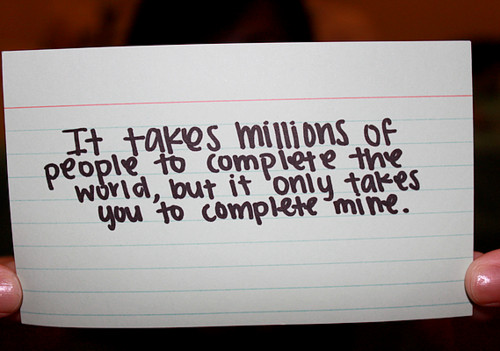 It takes millions of
people to complete the
world, but it only takes
you to complete mine.